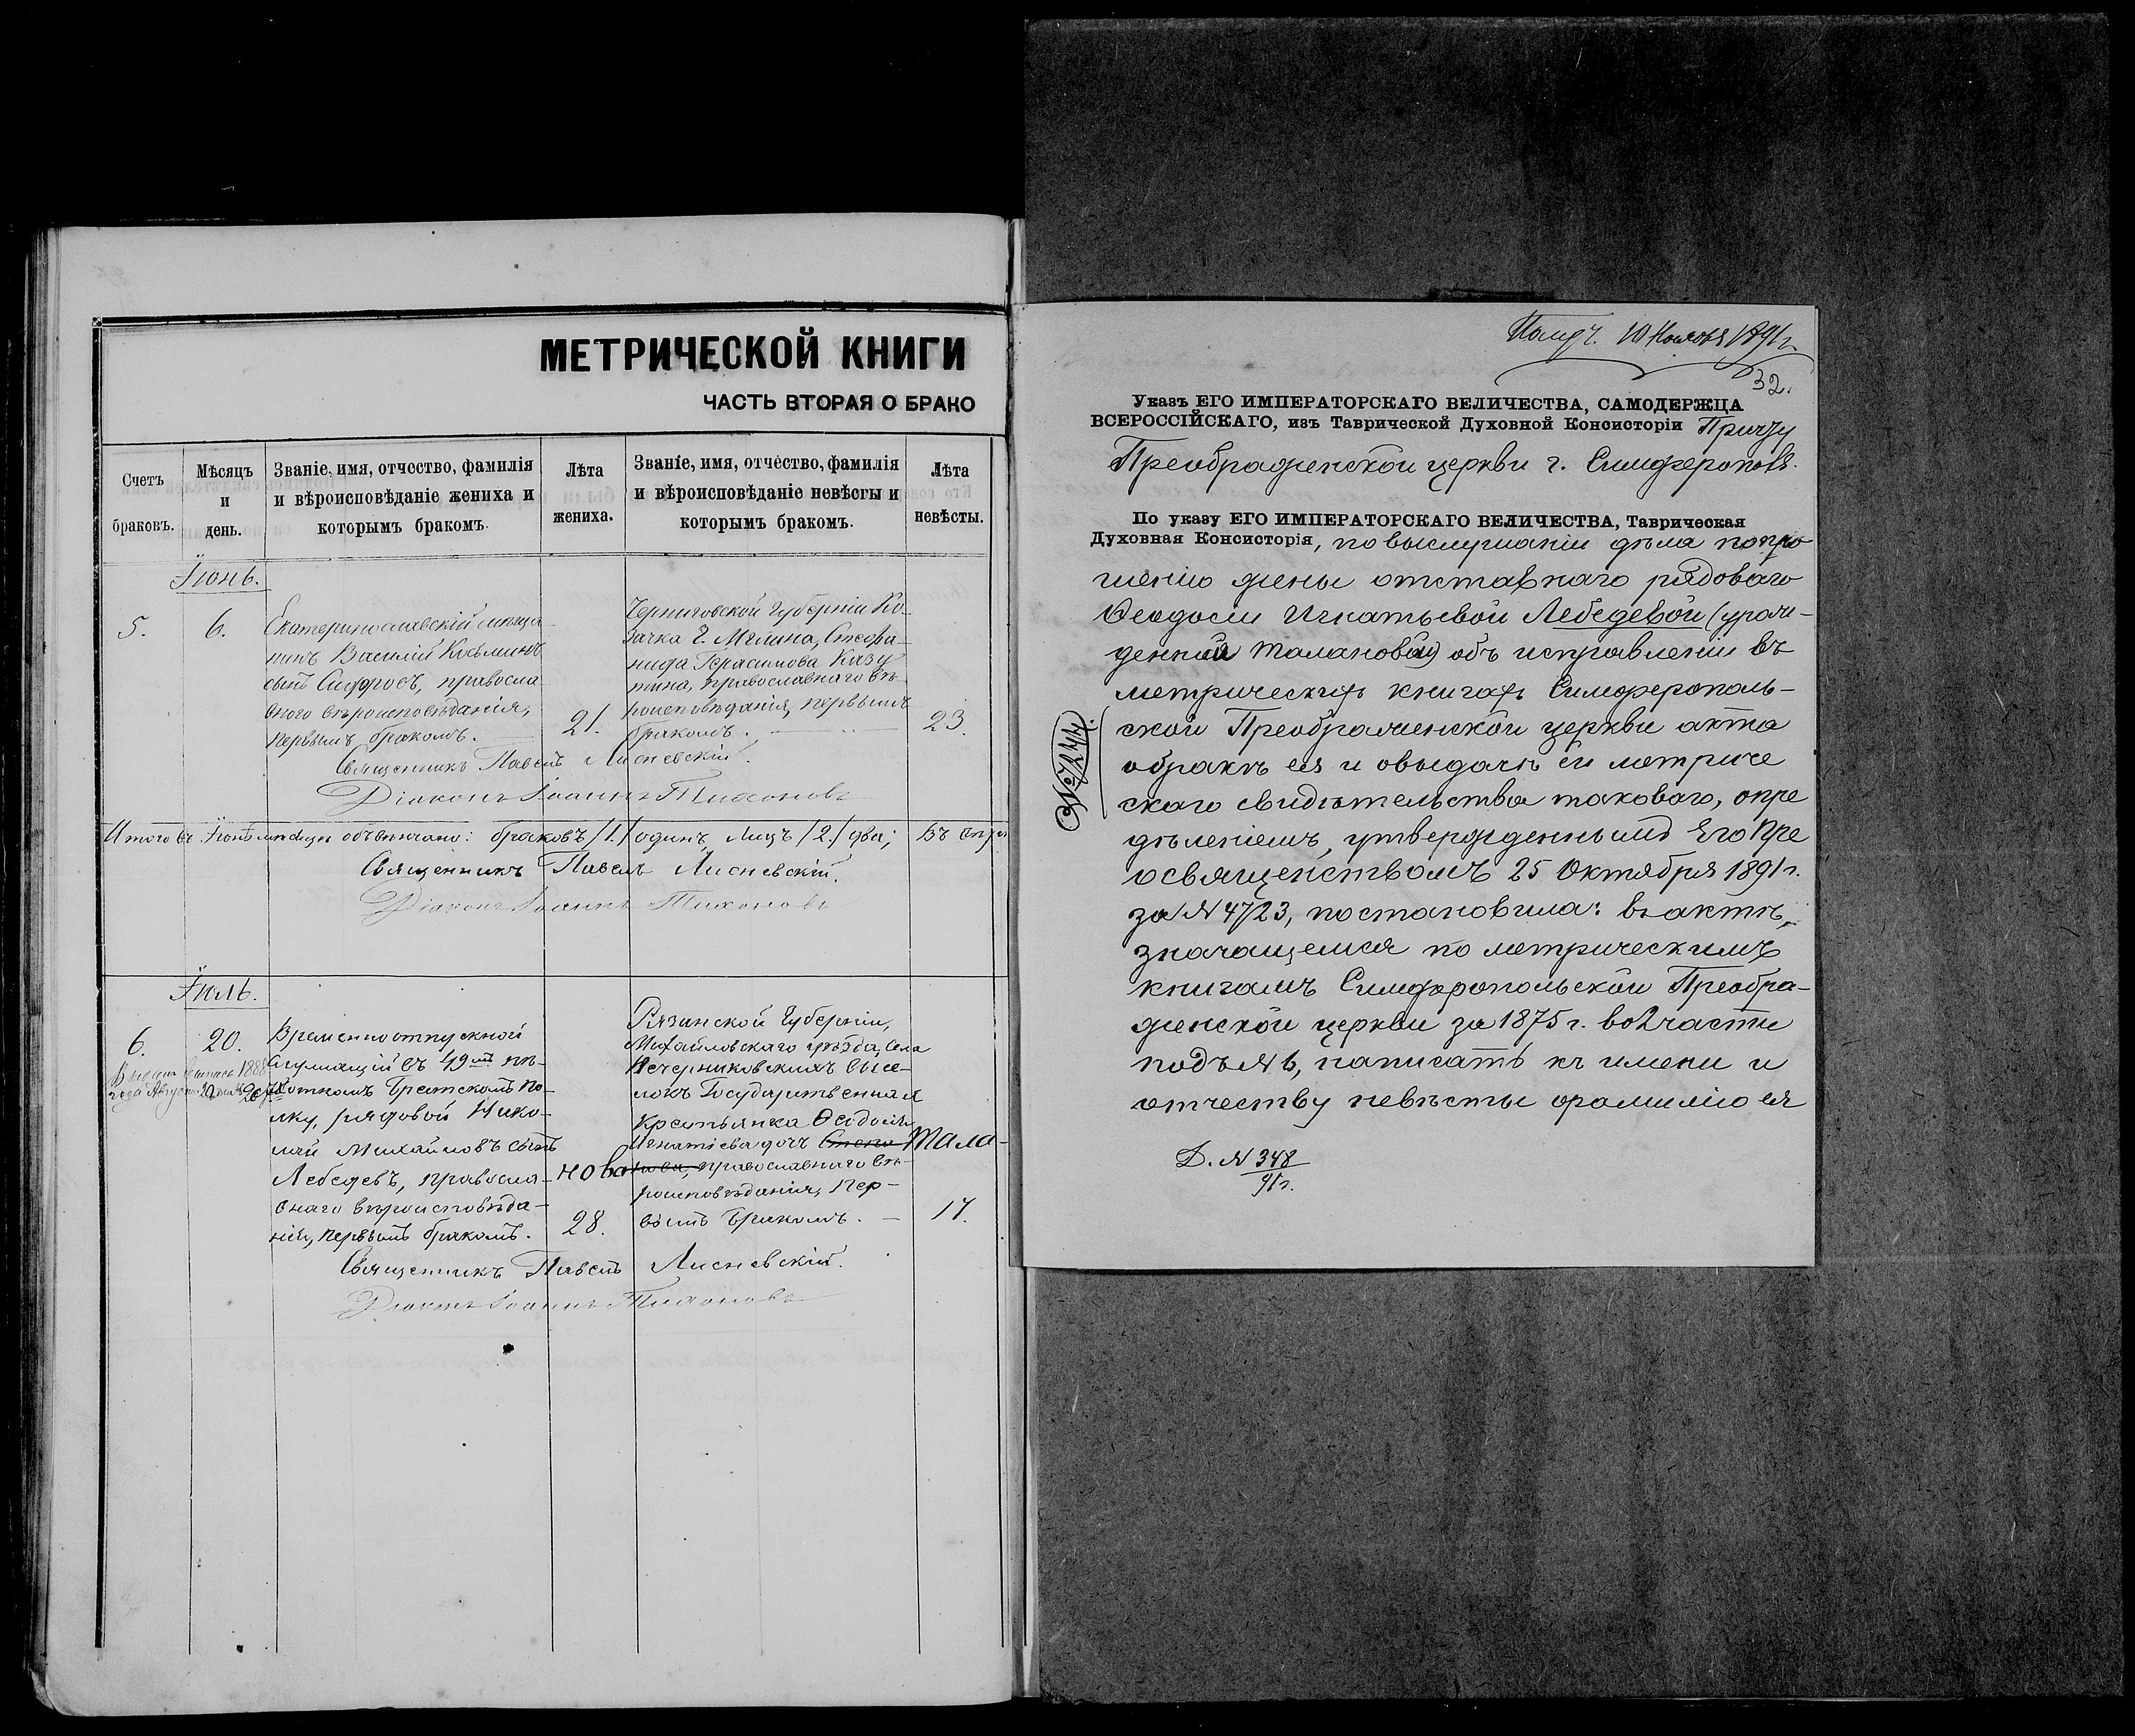 МЕТРИЧЕСКОЙ КНИГИ
ЧАСТЬ ВТОРАЯ О БРАКО
Счетъ браковъ.
Мѣсяцъ и день.
Званіе, имя, отчество, фамилія и вѣроисповѣданіе жениха и которымъ бракомъ.
Лѣта жениха.
Званіе, имя, отчество, фамилія и вѣроисповѣданіе невѣсты и которымъ бракомъ.
Лѣта невѣсты.
Іюнь.
5.
6.
Екатеринославскій мѣща-
нинъ Василій Козьминъ
сынъ Сифросъ, правосла-
вного вѣроисповѣданія,
первымъ бракомъ.
21.
Черниговской Губерніи Ко-
зачка г. Мглина, Стефа-
нида Герасимова Казу
тина, православнаго вѣ-
роисповѣданія, первымъ
бракомъ.
23.
Священникъ Павелъ Лисневскій.
Діаконъ Іоаннъ Тихоновъ
Итого въ Іюнѣ мѣсяцѣ обвѣнчано: браковъ /1./ одинъ, лицъ /2./ два;
Священникъ Павелъ Лисневскій.
Діаконъ Іоаннъ Тихоновъ
Іюль.
6.
20.
Временноотпускной
служащій въ 49мъ пѣ-
хотномъ Брестскомъ по-
лку, рядовой Нико-
лай Михайловъ сынъ
Лебедевъ, правосла-
внаго вѣроисповѣда-
нія, первымъ бракомъ.
28.
Рязанской Губерніи,
Михайловскаго уѣзда, села
Печерниковскихъ высе-
локъ Государственная
крестьянка Ѳедосія
Игнатіева дочь Степа Тала-
нова нова, православнаго вѣ-
роисповѣданія, пер-
вымъ бракомъ.
17.
Священникъ Павелъ Лисневскій.
Діаконъ Іоаннъ Тихоновъ
Получ. 10 Ноября 1891 г.
32.
Указъ ЕГО ИМПЕРАТОРСКАГО ВЕЛИЧЕСТВА, САМОДЕРЖЦА
ВСЕРОССІЙСКАГО, изъ Таврической Духовной Консисторіи Причту
Преображенской церкви г. Симферополя.
По указу ЕГО ИМПЕРАТОРСКАГО ВЕЛИЧЕСТВА, Таврическая
Духовная Консисторія, по выслушаніи дѣла по про-
шенію жены отставнаго рядоваго
Ѳеодосіи Игнатьевой Лебедевой (урож-
денной Талановой) объ исправленіи въ
метрическихъ книгахъ Симферополь-
ской Преображенской церкви акта
о бракѣ ея и о выдачѣ ей метриче
скаго свидѣтельства таковаго, опре
дѣленіемъ, утвержденнымъ Его Пре
освященствомъ 25 Октября 1891 г.
за № 4723, постановила: въ актѣ,
значащемся по метрическимъ
книгамъ Симферопольской Преобра-
женской церкви за 1875 г. во 2 части
подъ № 6, написать къ имени и
отчеству невѣсты фамилію ея
Д. № 348
91 г.